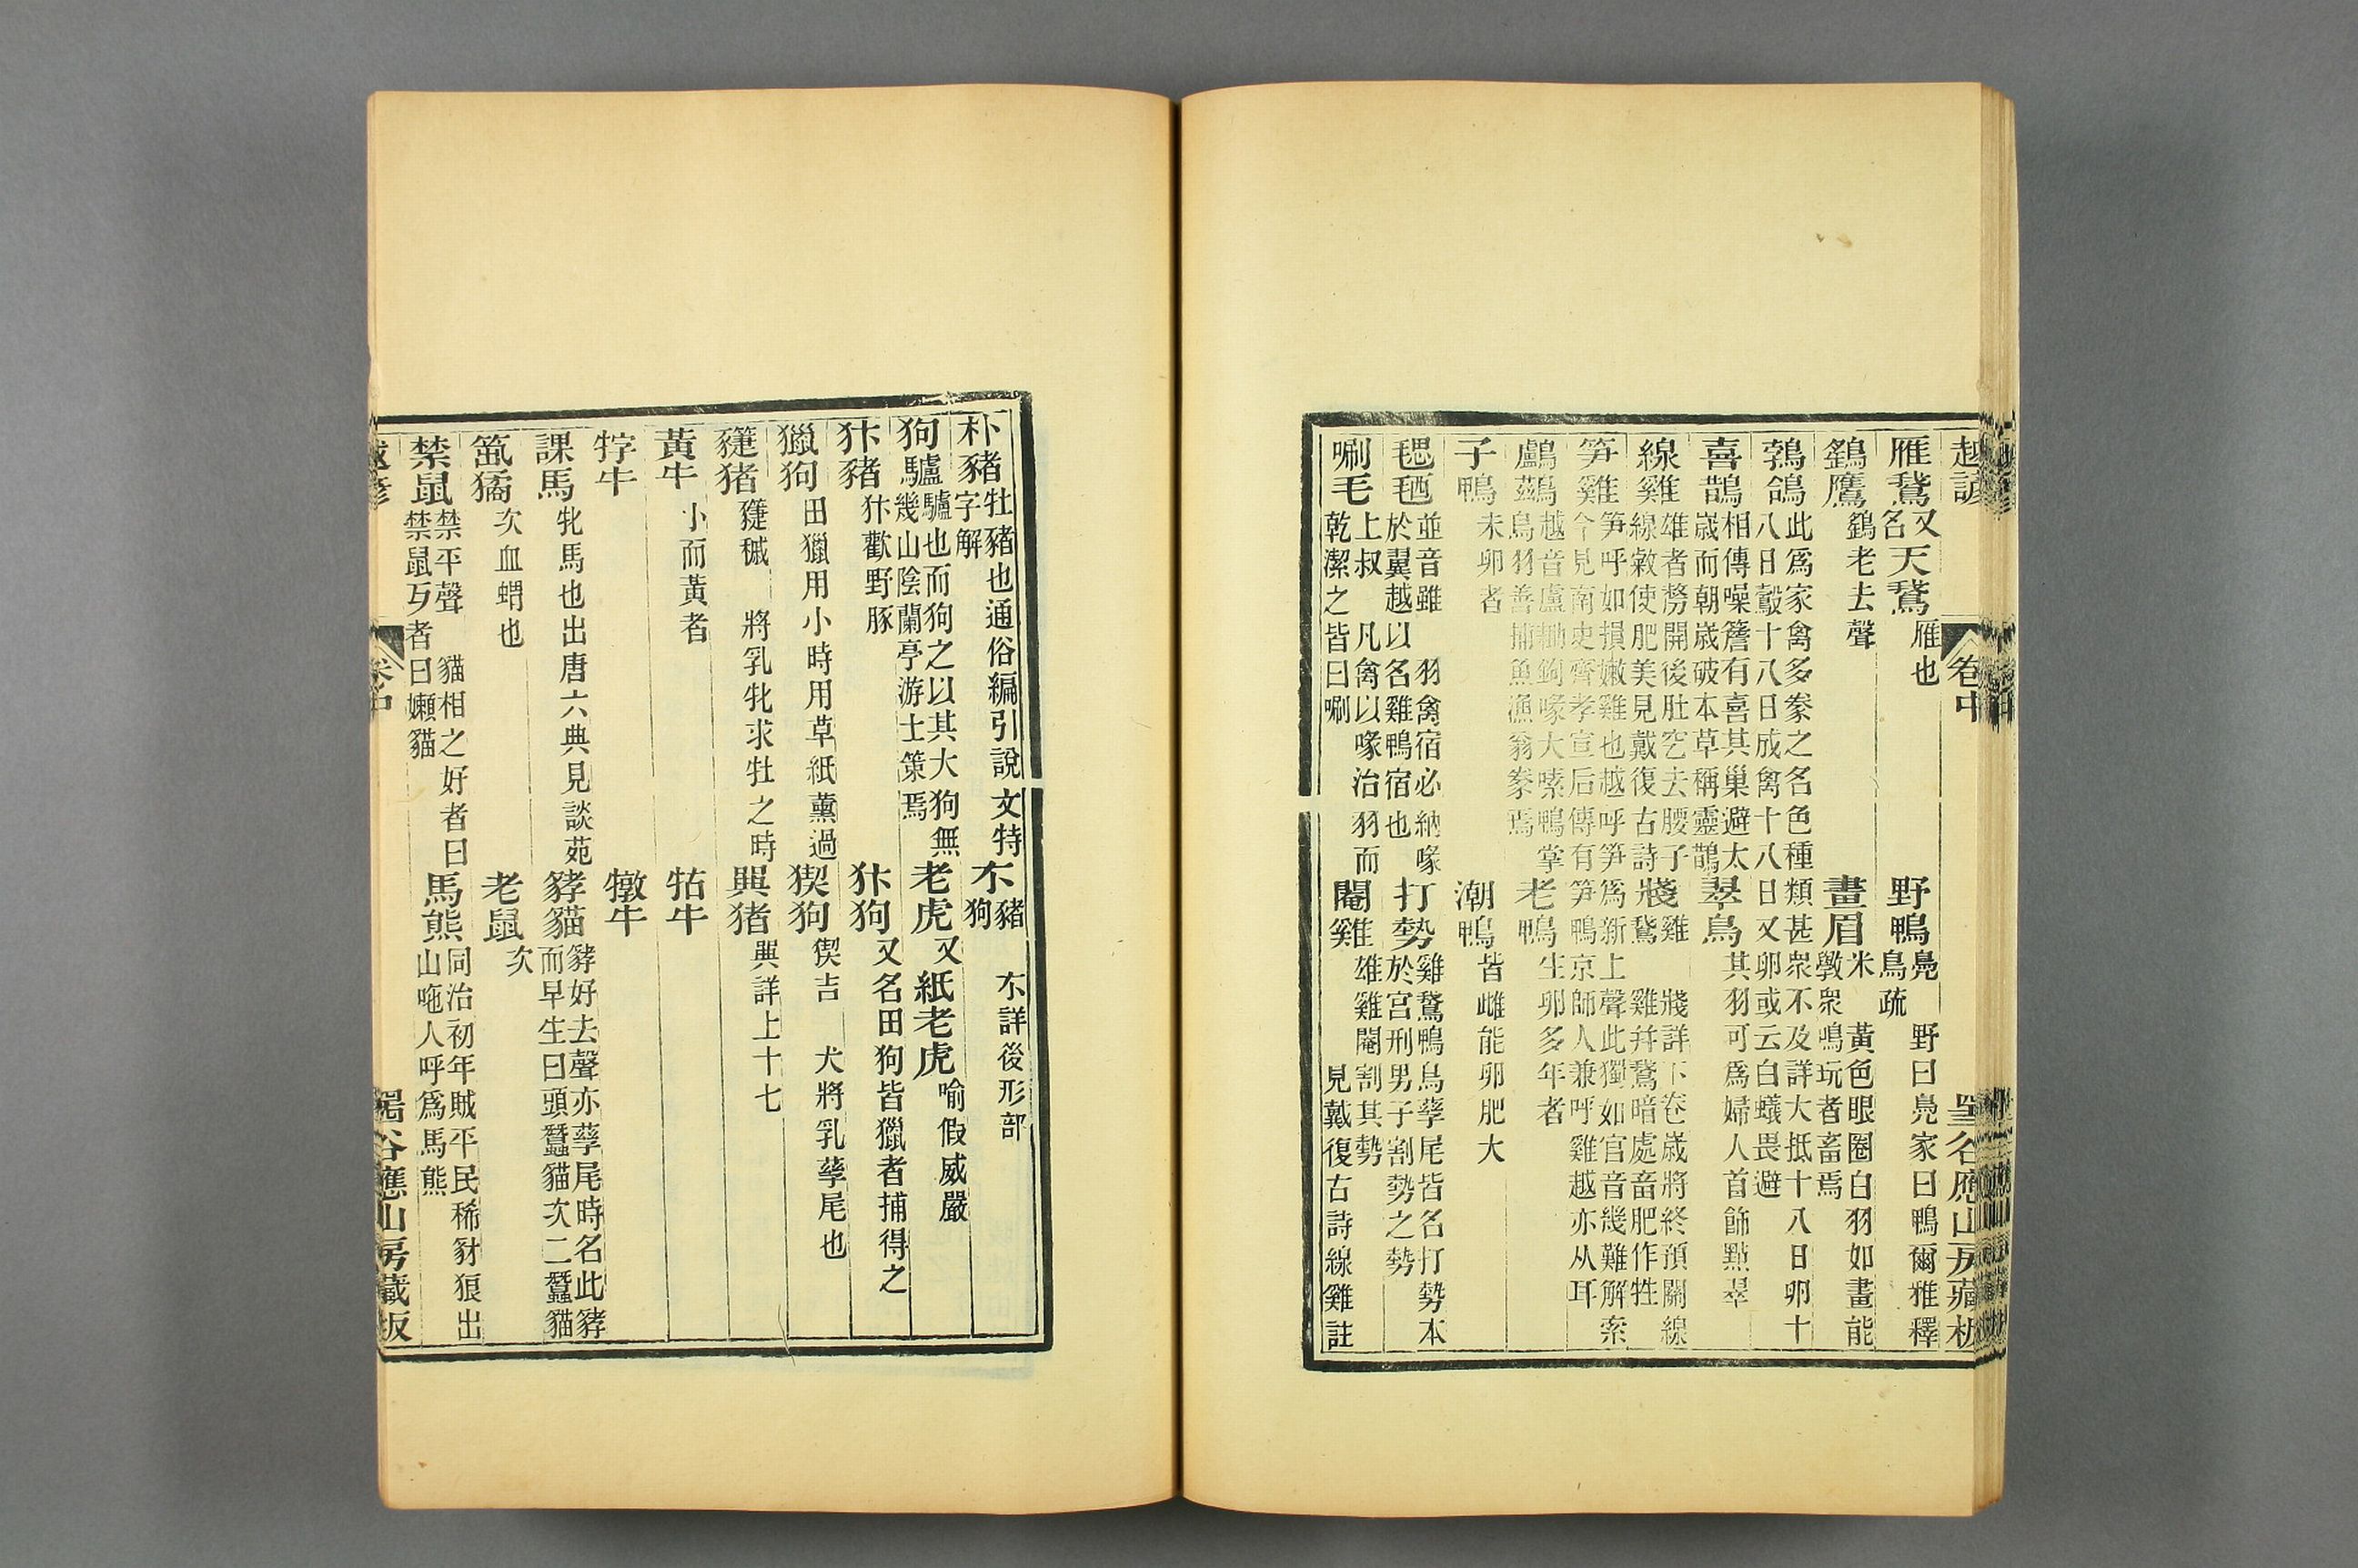 越諺 卷中 谷應山房藏板
雁鵞 又名天鵞 雁也 野鴨 鳧 野曰鳧家曰鴨爾雅釋鳥疏
鷹 老去聲 畫眉 米黃色眼圈白羽如畫能斅衆鳴玩者畜焉
鵓鴿 此爲家禽多豢之名色種類甚衆不及詳大抵十八日卵十八日鷇十八日成禽十八日又卵或云白蟻畏避
喜鵲 相傳噪簷有喜其巢避太歲而朝歲破本草稱靈鵲 翠鳥 其羽可爲婦人首飾點翠
線雞 雄者開後肚空去腰子線敹使肥美見戴復古詩 牋雞鵞 牋詳下卷歲將終預關線雞幷鵞暗處畜肥作牲
笋雞 笋呼如損嫩雞也越呼笋爲新上聲此獨如官音幾難解索今見南史齊孝宣后傳有笋鴨京師人兼呼雞越亦从耳
鸕鷀 越音盧鉤喙大嗉鴨掌烏羽善捕魚漁翁豢焉 老鴨 生卵多年者
子鴨 未卵者 潮鴨 皆雌能卵肥大
毸毢 並音雖 羽禽宿必納喙於翼越以名雞鴨宿也 打勢 雞鵞鴨鳥孳尾皆名打勢本於宮刑男子割勢之勢
唰毛 上叔 凡禽以喙治羽而乾潔之皆曰唰 閹雞 雄雞閹割其勢 見戴復古詩線雞註
朴豬 牡豬也通俗編引說文特字解 不豬狗 不詳後形部
狗驢 驢也而狗之以其大狗無幾山陰蘭亭游士策焉 老虎 又紙老虎 喻假威嚴
犿豬 犿歡野豚 犿狗 又名田狗皆獵者捕得之
獵狗 田獵用小時用草紙薰過 猰狗 猰吉 犬將乳孳尾也
猪 將乳牝求牡之時 興猪 興詳上十七
黃牛 小而黃者 牯牛
牸牛 犜牛
課馬 牝馬也出唐六典見談苑 貓 好去聲亦孳尾時名此而早生曰頭蠶貓次二蠶貓
次血蝟也 老鼠 次
禁鼠 禁平聲 貓相之好者曰禁鼠歹者曰嬾貓 馬熊 同治初年賊平民稀豺狼出山人呼爲馬熊
越諺 卷中 谷應山房藏板